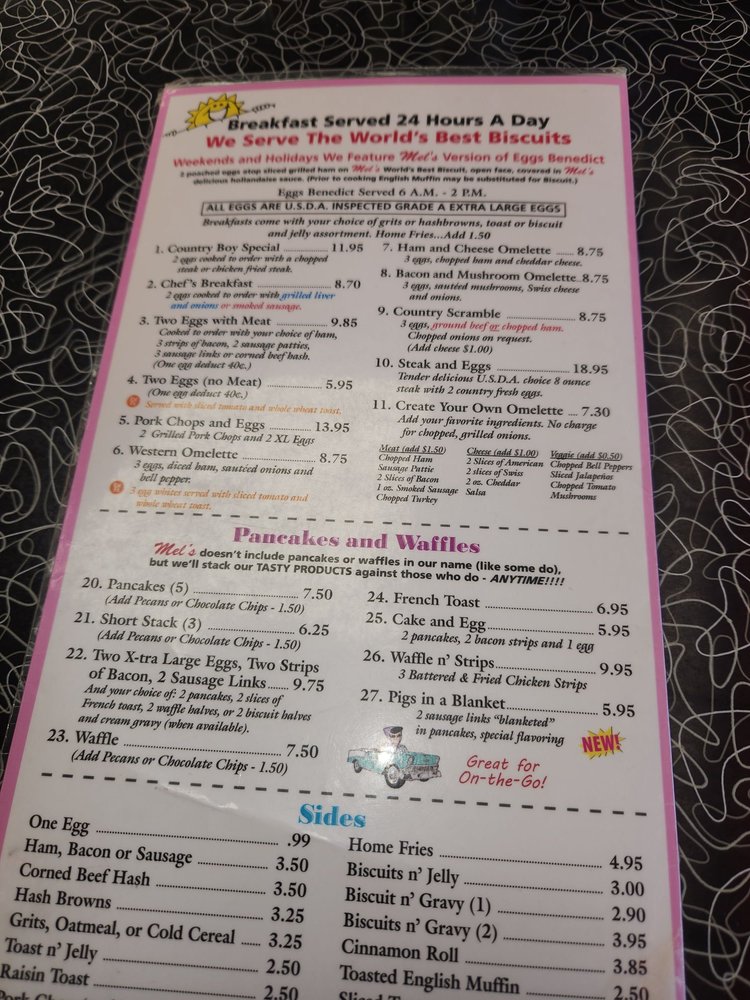 Breakfast Served 24 Hours A Day
We Serve The World's Best Biscuits
Weekends and Holidays We Feature Mel's Version of Eggs Benedict
2 poached eggs atop sliced grilled ham on Mel's World's Best Biscuit, open face, covered in Mel's
delicious hollandaise sauce. (Prior to cooking English Muffin may be substituted for Biscuit.)
Eggs Benedict Served 6 A.M. - 2 P.M.
ALL EGGS ARE U.S.D.A. INSPECTED GRADE A EXTRA LARGE EGGS
Breakfasts come with your choice of grits or hashbrowns, toast or biscuit
and jelly assortment. Home Fries...Add 1.50
1. Country Boy Special ........ 11.95
2 eggs cooked to order with a chopped
steak or chicken fried steak.
2. Chef's Breakfast ........ 8.70
2 eggs cooked to order with grilled liver
and onions or smoked sausage.
3. Two Eggs with Meat ........ 9.85
Cooked to order with your choice of ham,
3 strips of bacon, 2 sausage patties,
3 sausage links or corned beef hash.
(One egg deduct 40c.)
4. Two Eggs (no Meat) ........ 5.95
(One egg deduct 40c.)
Served with sliced tomato and whole wheat toast.
5. Pork Chops and Eggs ........ 13.95
2 Grilled Pork Chops and 2 XL Eggs
6. Western Omelette ........ 8.75
3 eggs, diced ham, sautéed onions and
bell pepper.
3 egg whites served with sliced tomato and
whole wheat toast.
7. Ham and Cheese Omelette ...... 8.75
3 eggs, chopped ham and cheddar cheese.
8. Bacon and Mushroom Omelette..8.75
3 eggs, sautéed mushrooms, Swiss cheese
and onions.
9. Country Scramble ........ 8.75
3 eggs, ground beef or chopped ham.
Chopped onions on request.
(Add cheese $1.00)
10. Steak and Eggs ........ 18.95
Tender delicious U.S.D.A. choice 8 ounce
steak with 2 country fresh eggs.
11. Create Your Own Omelette .... 7.30
Add your favorite ingredients. No charge
for chopped, grilled onions.
Meat (add $1.50)
Chopped Ham
Sausage Pattie
2 Slices of Bacon
1 oz. Smoked Sausage
Chopped Turkey
Cheese (add $1.00)
2 Slices of American
2 slices of Swiss
2 oz. Cheddar
Salsa
Veggie (add $0.50)
Chopped Bell Peppers
Sliced Jalapeños
Chopped Tomato
Mushrooms
Pancakes and Waffles
Mel's doesn't include pancakes or waffles in our name (like some do),
but we'll stack our TASTY PRODUCTS against those who do - ANYTIME!!!!
20. Pancakes (5) ........ 7.50
(Add Pecans or Chocolate Chips - 1.50)
21. Short Stack (3) ........ 6.25
(Add Pecans or Chocolate Chips - 1.50)
22. Two X-tra Large Eggs, Two Strips
of Bacon, 2 Sausage Links...... 9.75
And your choice of: 2 pancakes, 2 slices of
French toast, 2 waffle halves, or 2 biscuit halves
and cream gravy (when available).
23. Waffle ........ 7.50
(Add Pecans or Chocolate Chips - 1.50)
24. French Toast ........ 6.95
25. Cake and Egg ........ 5.95
2 pancakes, 2 bacon strips and 1 egg
26. Waffle n' Strips ........ 9.95
3 Battered & Fried Chicken Strips
27. Pigs in a Blanket ........ 5.95
2 sausage links "blanketed"
in pancakes, special flavoring
NEW!
Great for
On-the-Go!
Sides
One Egg ........ .99
Ham, Bacon or Sausage ........ 3.50
Corned Beef Hash ........ 3.50
Hash Browns ........ 3.25
Grits, Oatmeal, or Cold Cereal .... 3.25
Toast n' Jelly ........ 2.50
Raisin Toast ........ 2.50
Home Fries ........ 4.95
Biscuits n' Jelly ........ 3.00
Biscuit n' Gravy (1) ........ 2.90
Biscuits n' Gravy (2) ........ 3.95
Cinnamon Roll ........ 3.85
Toasted English Muffin ........ 2.50